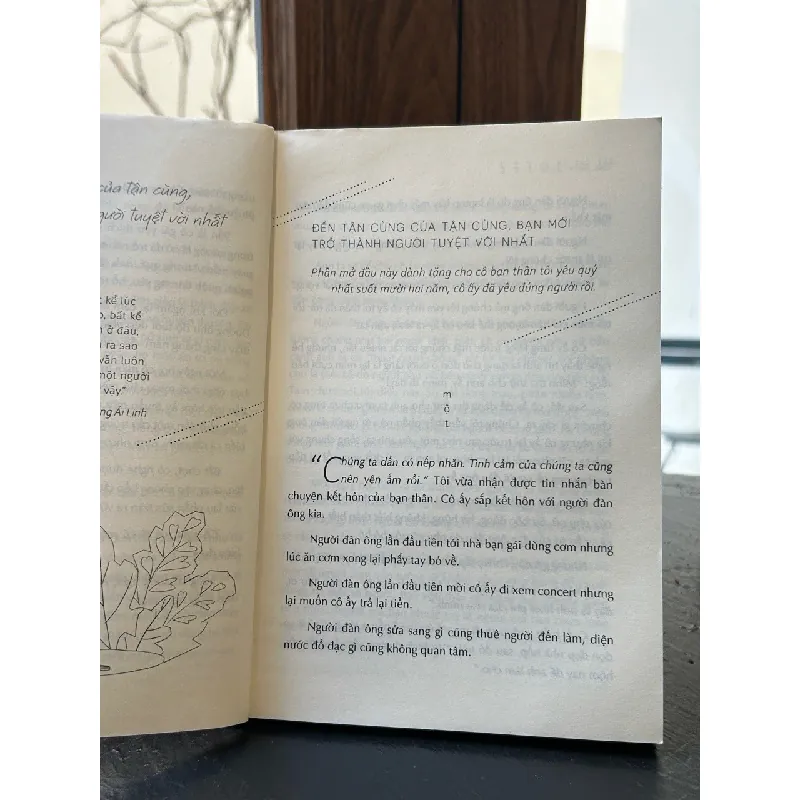 của tận cùng,
người tuyệt vời nhất
kể lúc
bất kể
ở đâu,
ra sao
vẫn luôn
một người
vậy"
Ái Linh
ĐẾN TẬN CÙNG CỦA TẬN CÙNG, BẠN MỚI
TRỞ THÀNH NGƯỜI TUYỆT VỜI NHẤT
Phần mở đầu này dành tặng cho cô bạn thân tôi yêu quý
nhất suốt mười hai năm, cô ấy đã yêu đúng người rồi.
m
ộ
t
"Chúng ta dần có nếp nhăn. Tình cảm của chúng ta cũng
nên yên ấm rồi." Tôi vừa nhận được tin nhắn bàn
chuyện kết hôn của bạn thân. Cô ấy sắp kết hôn với người đàn
ông kia.
Người đàn ông lần đầu tiên tới nhà bạn gái dùng cơm nhưng
lúc ăn cơm xong lại phẩy tay bỏ về.
Người đàn ông lần đầu tiên mời cô ấy đi xem concert nhưng
lại muốn cô ấy trả lại tiền.
Người đàn ông sửa sang gì cũng thuê người đến làm, điện
nước đồ đạc gì cũng không quan tâm.